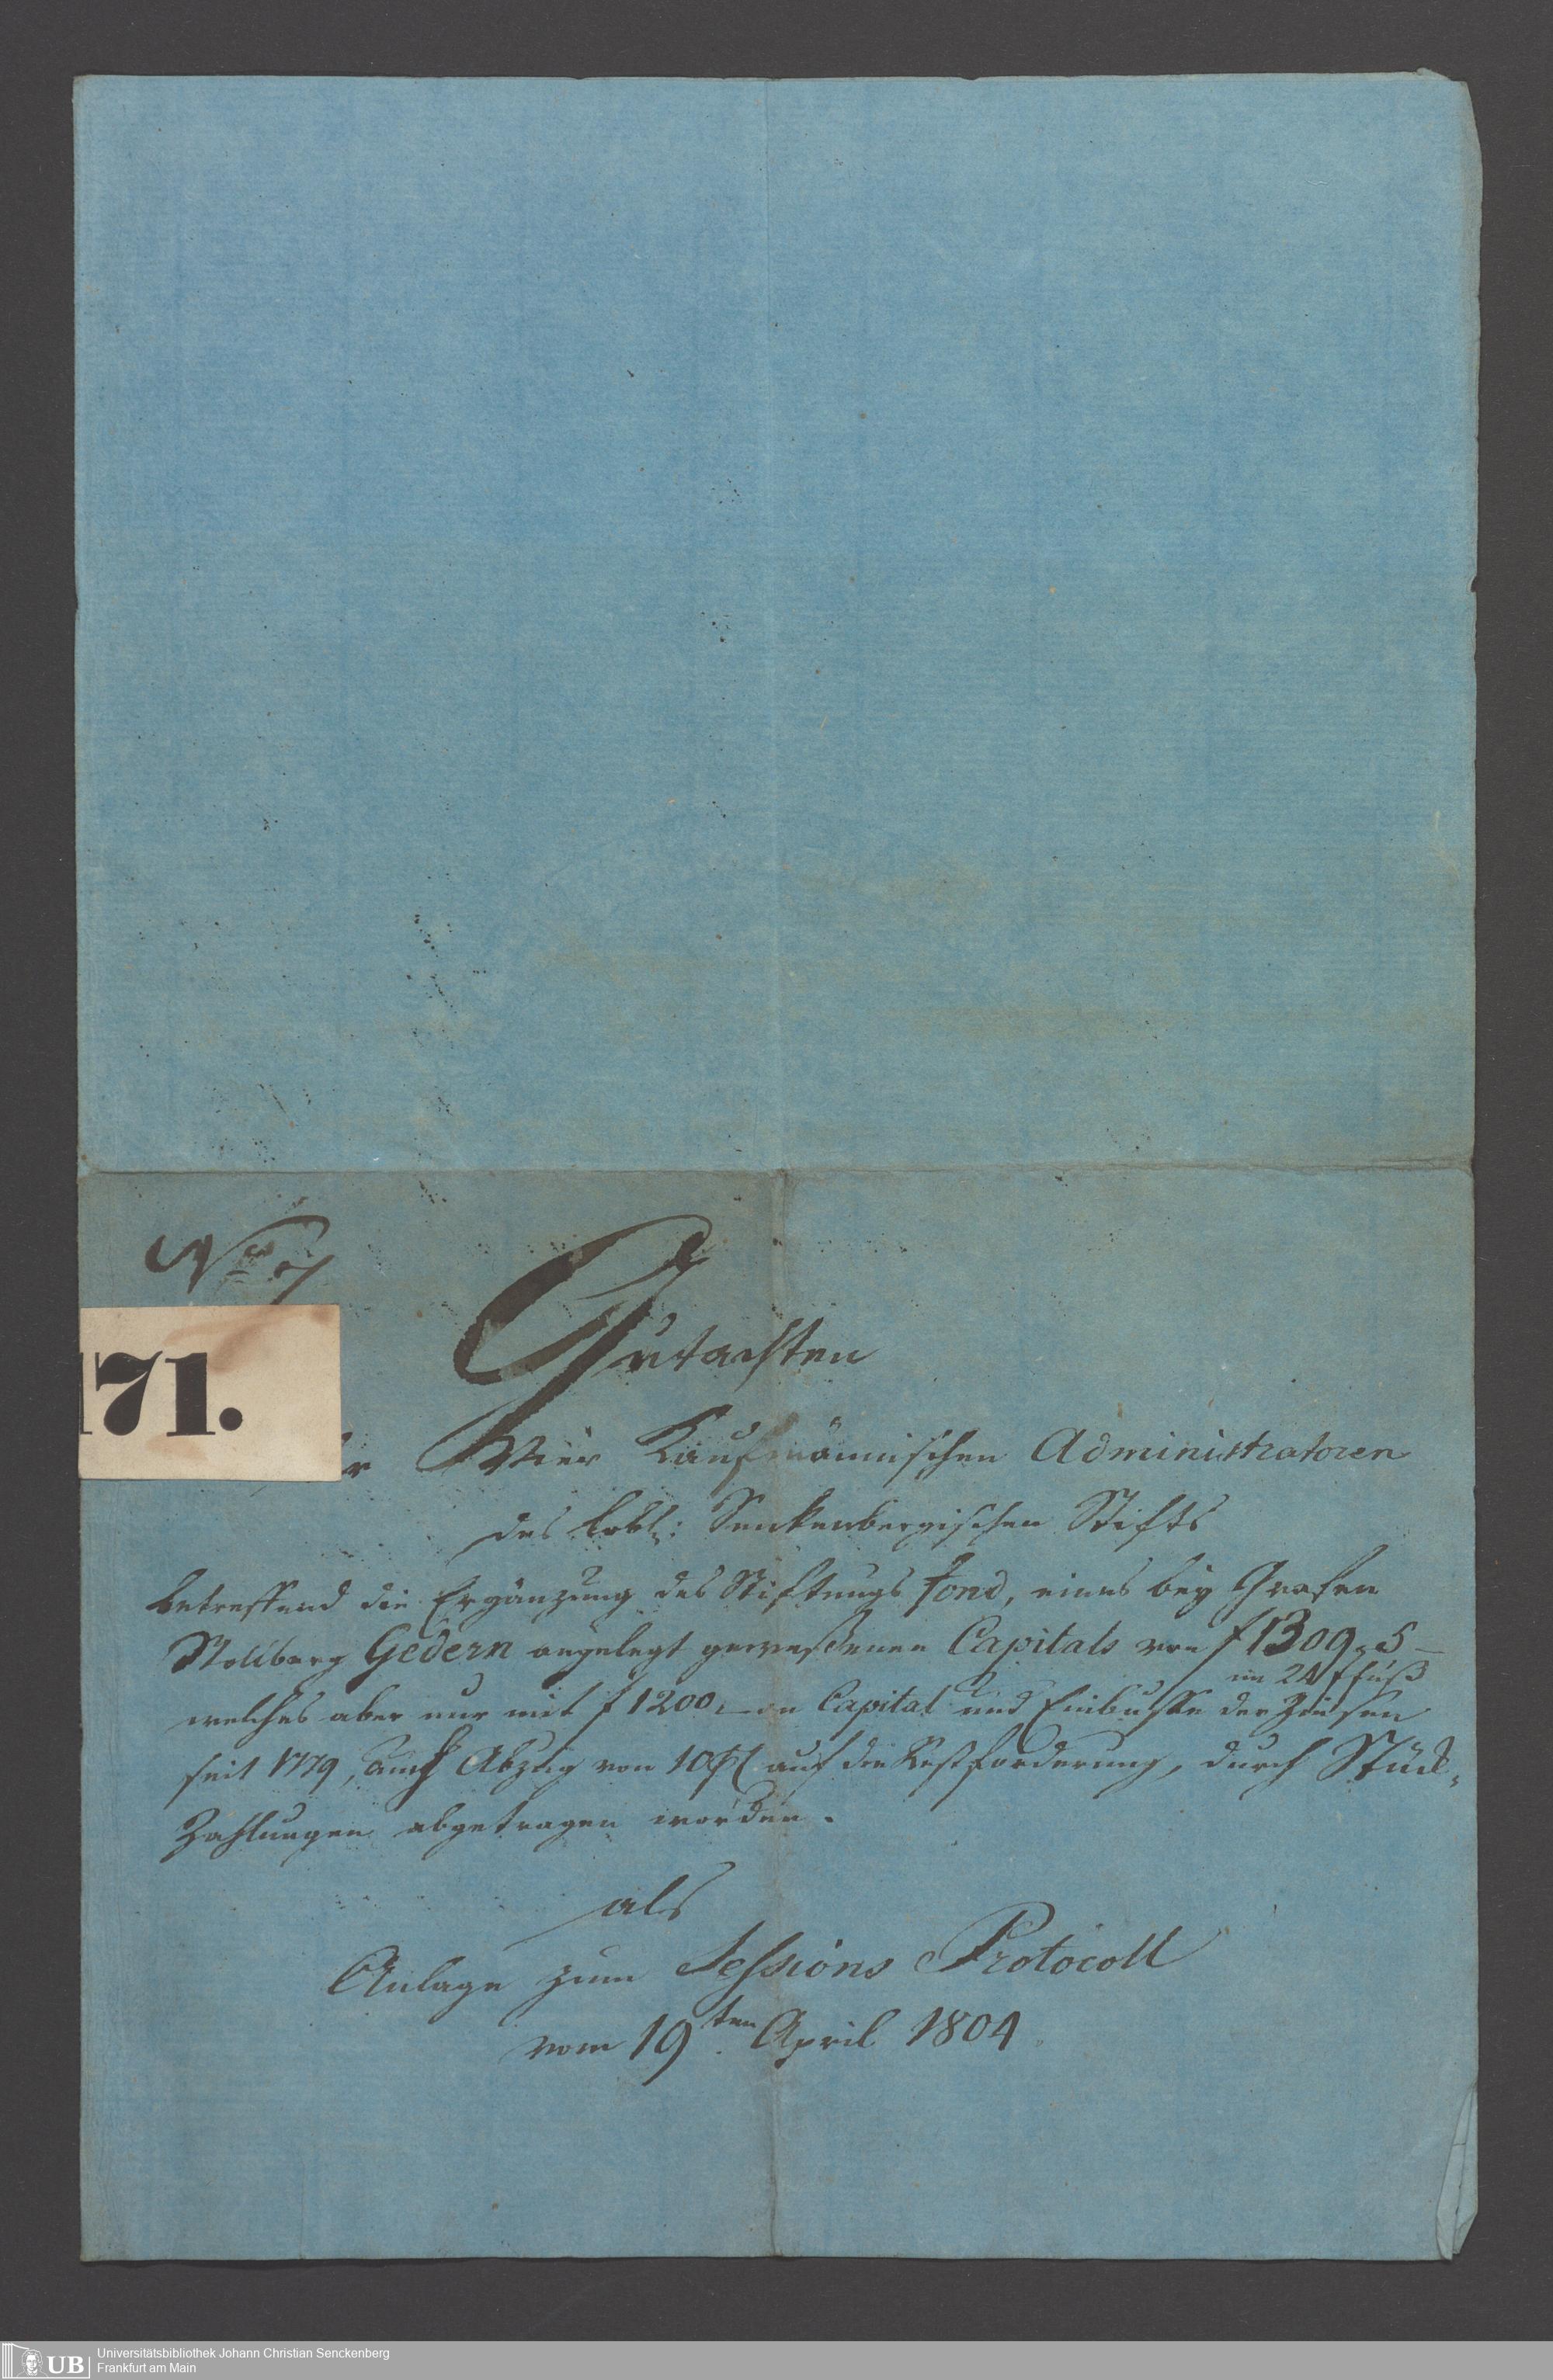 No 7
171.
Gutachten
Vier Kaufmännischen Administratoren
des lobl: Senckenbergischen Stifts
betreffend die Ergänzung des Stiftungs fond, eines bey Grafen
Stollberg Gedern angelegt geweßenen Capitals von f 1309.5 –
im 24 f fuß
welches aber nur mit f 1200 – an Capital und Einbusse der Zinsen
seit 1779, auch Abzug von auf die Restforderung, durch Stück-
Zahlungen abgetragen worden.
als
Anlage zum Sessions Protocoll
vom 19ten April 1804
UB
Universitätsbibliothek Johann Christian Senckenberg
Frankfurt am Main